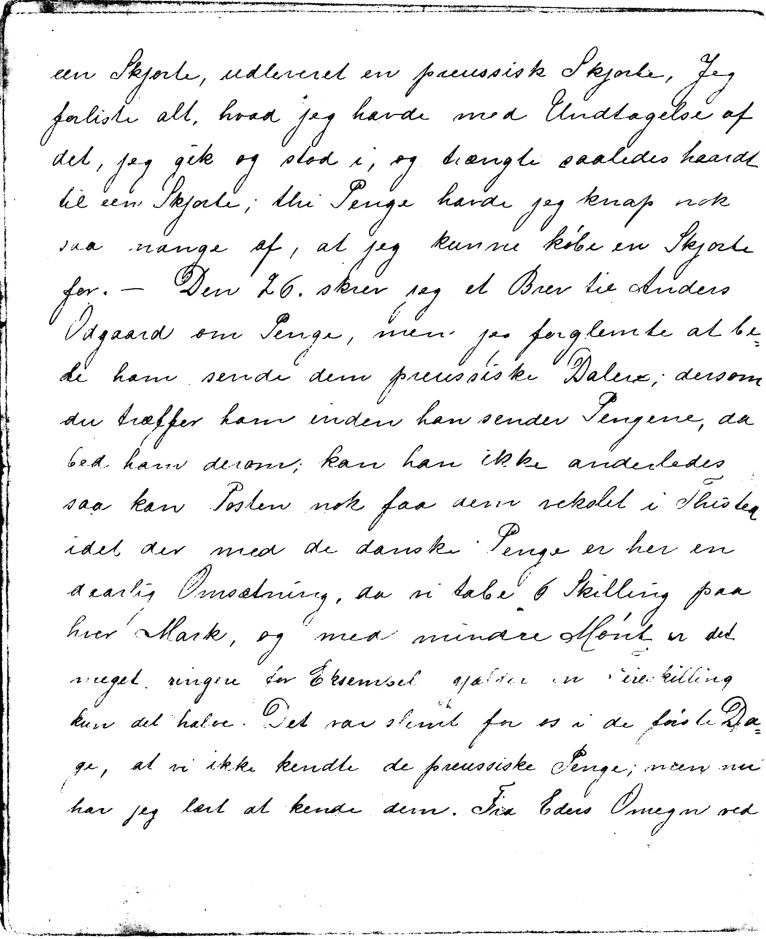 een Skjorte, udleveret en preussisk Skjorte, Jeg
forliste alt, hvad jeg havde med Undtagelse af
det, jeg gik og stod i, og trængte saaledes haardt
til een Skjorte; thi Penge havde jeg knap nok
saa mange af, at jeg kunne købe en Skjorte
for. — Den 26. skrev jeg et Brev til Anders
Odgaard om Penge, men jeg forglemte at be=
de ham sende dem preussiske Dalere; dersom
du træffer ham inden han sender Pengene, da
bed ham derom; kan han ikke anderledes
saa kan Posten nok faa dem vekslet i Thisted
idet der med de danske Penge er her en
daarlig Omsætning, da vi tabe 6 Skilling paa
hver Mark, og med mindre Mønt er det
meget ringere for Eksempel gjælder en Fireskilling
kun det halve. Det var slemt for os i de første Da=
ge, at vi ikke kendte de preussiske Penge; men nu
har jeg lært at kende dem. Fra Eders Omegn ved